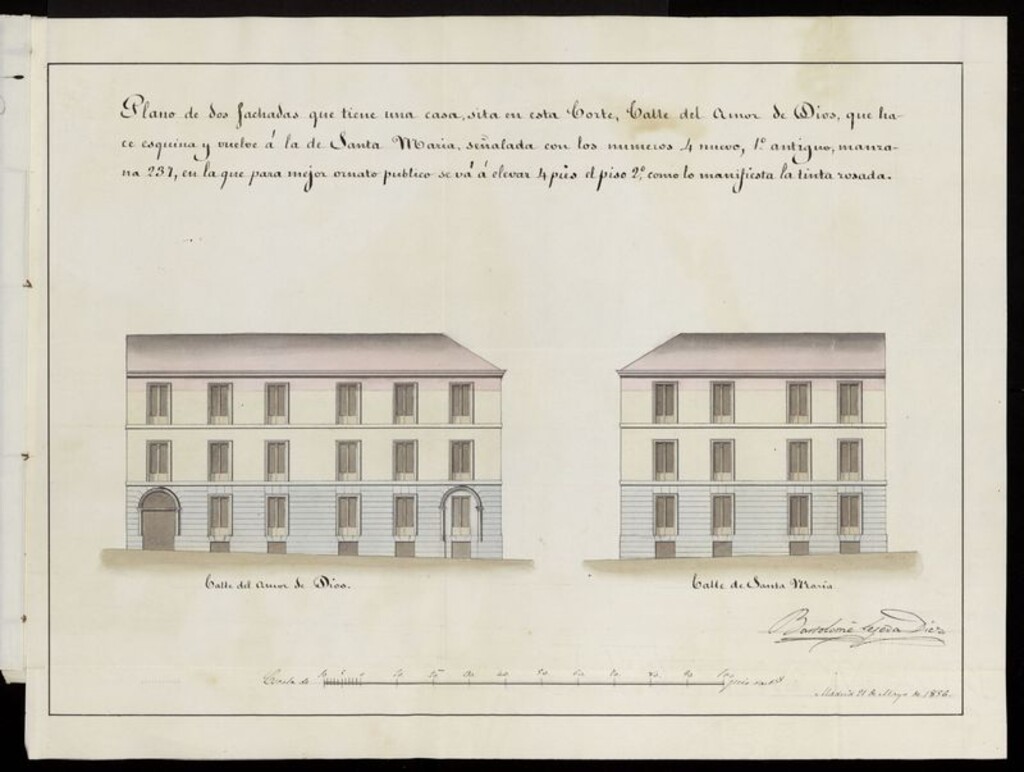 Plano de dos fachadas que tiene una casa, sita en esta Corte, Calle del Amor de Dios, que ha-
ce esquina y vuelve á la de Santa Maria, señalada con los numeros 4 nuevo, 1º antiguo, manza-
na 237, en la que para mejor ornato publico se vá á elevar 4 pies el piso 2º, como lo manifiesta la tinta rosada.
Calle del Amor de Dios.
Calle de Santa Maria
Bartolomé Tejeda Diez
Escala de 10 5 0 10 20 30 40 50 60 70 80 90 100 pies
Madrid 21 de Mayo de 1856.